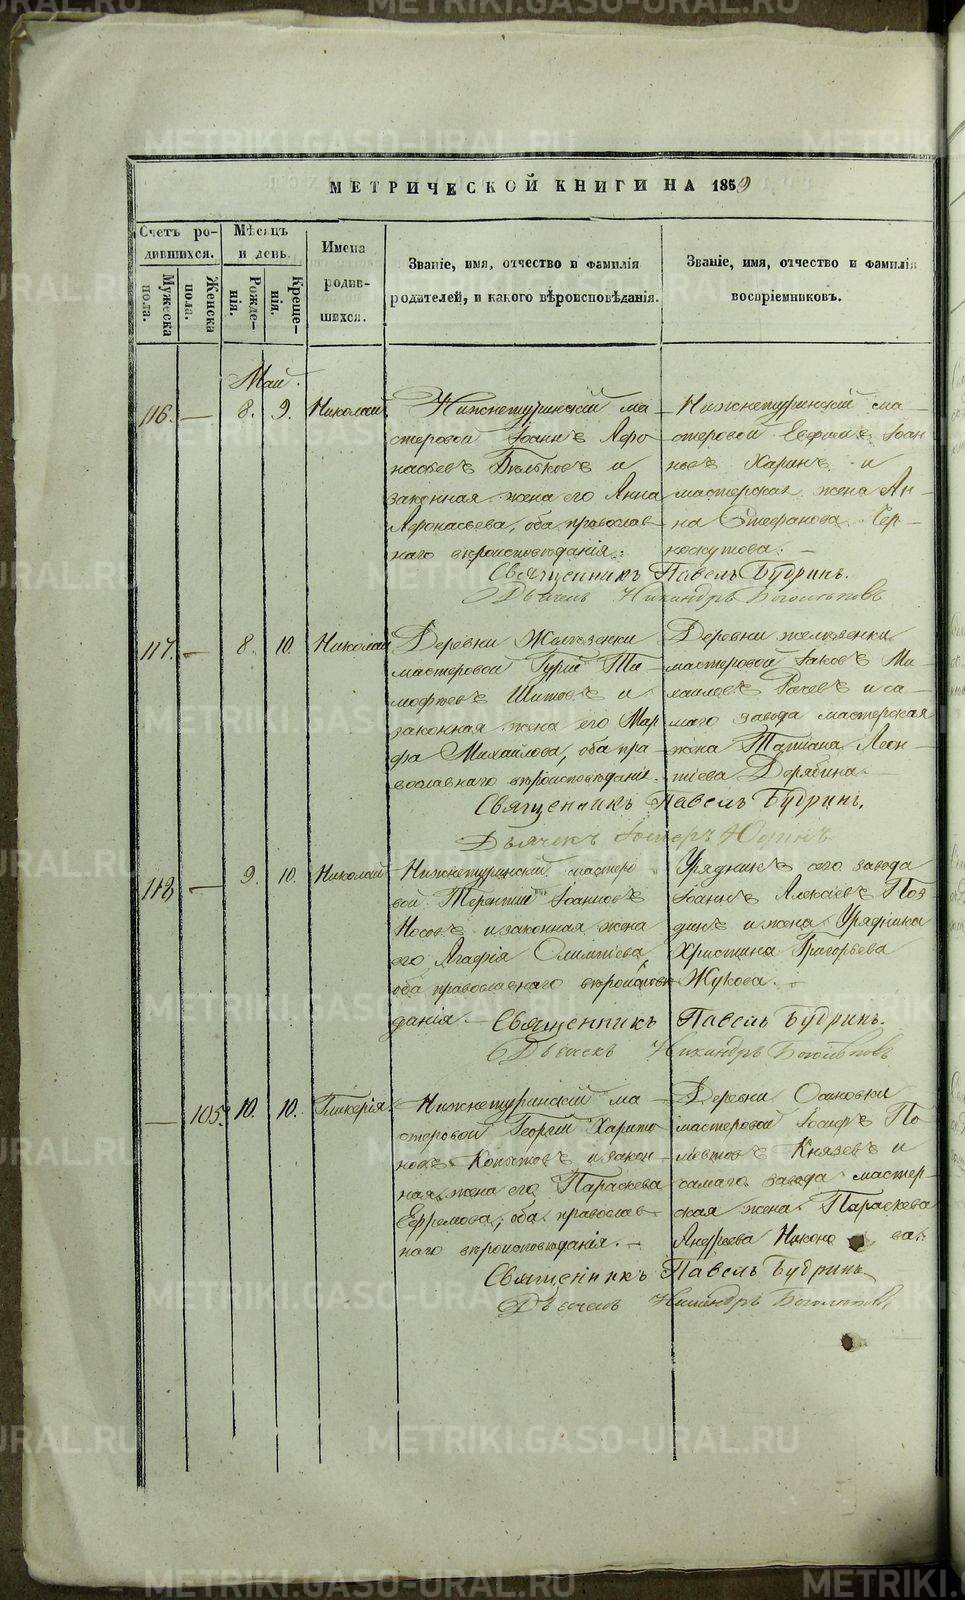 МЕТРИЧЕСКОЙ КНИГИ НА 1859
Счетъ ро-
дившихся.
Мѣсяцъ
и день.
Имена
родив-
шихся.
Званіе, имя, отчество и фамилія
родителей, и какого вѣроисповѣданія.
Званіе, имя, отчество и фамилія
воспріемниковъ.
Мужеска
пола.
Женска
пола.
Рожде-
нія.
Креще-
нія.
Май.
116. — 8. 9. Николай
Нижнетуринскій ма-
стеровой Іоаннъ Афо
насьевъ и
законная жена его Анна
Афонасьева, оба православ-
наго вѣроисповѣданія.
Нижнетуринскій ма-
стеровой Евфимъ Іоан
новъ Харинъ и
мастерская жена Ан-
на Стефанова Чер-
носкутова. —
Священникъ Павелъ Будринъ.
Дьячекъ Никандръ Боголѣповъ
117. — 8. 10. Николай
Деревни Желѣзенки
мастеровой Гурій Ти-
мофѣевъ Шитовъ и
законная жена его Мар
фа Михайлова, оба пра-
вославнаго вѣроисповѣданія.
Деревни Желѣзенки
мастеровой Іаковъ Ми-
хайловъ и са-
маго завода мастерская
жена Татіана Леон-
тіева Дерябина.
Священникъ Павелъ Будринъ.
Дьячекъ Юдинъ
118 — 9. 10. Николай
Нижнетуринскій мастеро
вой Терентій Іоанновъ
Носовъ и законная жена
его Агафія Олимпіева,
оба православнаго вѣроисповѣ-
данія. —
Урядникъ сего завода
Іоаннъ Алексѣевъ Поз
динъ и жена Урядника
Христина Григорьева
Жукова. —
Священникъ Павелъ Будринъ.
Дьячекъ Никандръ Боголѣповъ
— 105. 10. 10. Гликерія.
Нижнетуринскій ма-
стеровой Георгій Харито
новъ Копытовъ и закон-
ная жена его Параскева
Ефремова, оба православ-
наго вѣроисповѣданія. —
Деревни Осиновки
мастеровой Іосифъ По-
ліевтовъ Князевъ и
самаго завода мастер-
ская жена Параскева
Андреева Никоно ва.
Священникъ Павелъ Будринъ
Дьячекъ Никандръ Боголѣповъ
METRIKI.GASO-URAL.RU